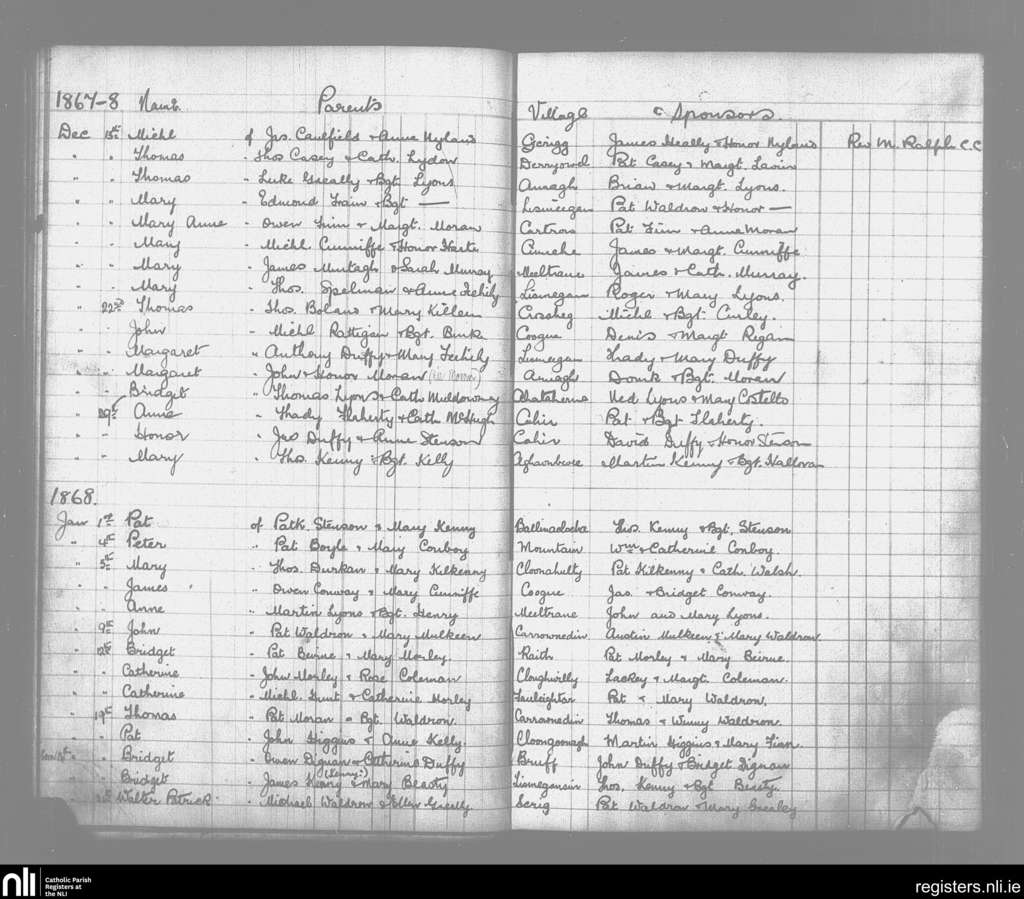 1867-8 Name Parents Village & Sponsors.
Dec 15th Michl of Jas. Caulfield & Anne Hyland Gerigg James Heally & Honor Hyland Rev M. Ralph C.C
" " Thomas " Thos Casey & Cath. Lydon Derrynod Pat Casey & Margt. Lavin
" " Thomas " Luke Greally & Bgt. Lyons Annagh Brian & Margt. Lyons.
" " Mary " Edmond & Bgt — Pat Waldron & Honor —
" " Mary Anne - Owen Finn & Margt. Moran Cartron Pat Finn & Anne Moran
" " Mary " Michl Cunniffe & Honor Harte James & Margt. Cunniffe
" " Mary " James Murtagh & Sarah Murray Meeltrane James & Cath. Murray.
" " Mary " Thos. Spelman & Anne Feehily Lismegan Roger & Mary Lyons.
" 22nd Thomas " Thos. Boland & Mary Killeen Crossbeg Michl & Bgt. Curley.
" " John " Michl Rattigan & Bgt. Burke Coogue Denis & Margt Regan
" " Margaret " Anthony Duffy & Mary Feehily Lismegan Thady & Mary Duffy
" " Margaret " John & Honor Moran Annagh Domk & Bgt. Moran
" " Bridget " Thomas Lyons & Cath Muldowney Ned Lyons & Mary Costello
" 29th Anne " Thady Flaherty & Cath McHugh Cahir Pat & Bgt Flaherty.
" " Honor " Jas Duffy & Anne Stenson Cahir David Duffy & Honor Stenson
" " Mary " Thos. Kenny & Bgt. Kelly Martin Kenny & Bgt. Halloran
1868.
Jan 1st Pat of Patk. Stenson & Mary Kenny Thos. Kenny & Bgt. Stenson
" 4th Peter " Pat Boyle & Mary Conboy Mountain Wm & Catherine Conboy.
" 5th Mary " Thos. Durkan & Mary Kilkenny Cloonahulty Pat Kilkenny & Cath. Walsh.
" " James " Owen Conway & Mary Cunniffe Coogue Jas. & Bridget Conway.
" " Anne " Martin Lyons & Bgt. Henry Meeltrane John and Mary Lyons.
" 9th John " Pat Waldron & Mary Mulkeen Carrownedin Austin Mulkeen & Mary Waldron
" 12th Bridget " Pat Beirne & Mary Morley. Raith Pat Morley & Mary Beirne.
" " Catherine " John Morley & Rose Coleman Cloughwilly Lackey & Margt. Coleman.
" " Catherine " Michl. Hunt & Catherine Morley Tauleightar Pat & Mary Waldron.
" 19th Thomas " Pat Moran & Bgt. Waldron. Carrownedin Thomas & Winny Waldron.
" " Pat " John Higgins & Anne Kelly. Cloongoonagh Martin Higgins & Mary Finn.
" " Bridget " Owen Dignan & Catherine Duffy Bruff John Duffy & Bridget Dignan
(Kenny?)
" " Bridget " James Henry & Mary Beasty Lismeganein Thos. Kenny & Bgt Beasty.
Walter Patrick " Michael Waldron & Ellen Greally Scrig Pat Waldron & Mary Grealey
nli
Catholic Parish
Registers at
the NLI
registers.nli.ie